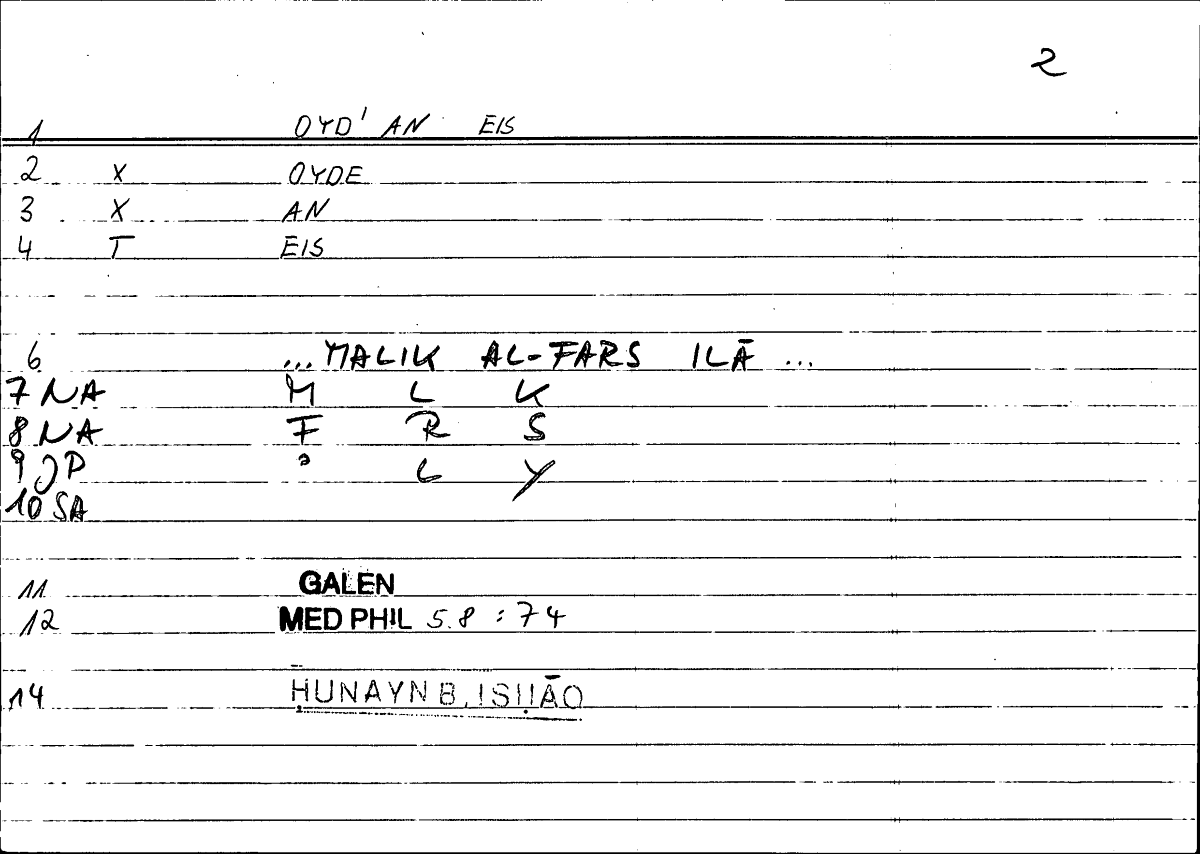 2
1 OYD' AN EIS
2 X OYDE
3 X AN
4 T EIS
6 ...MALIK AL-FARS ILĀ ...
7 NA M L K
8 NA F R S
9 JP ʾ L Y
10 SA
11 GALEN
12 MED PHIL 5.8 : 74
14 ḤUNAYN B. ISḤĀQ